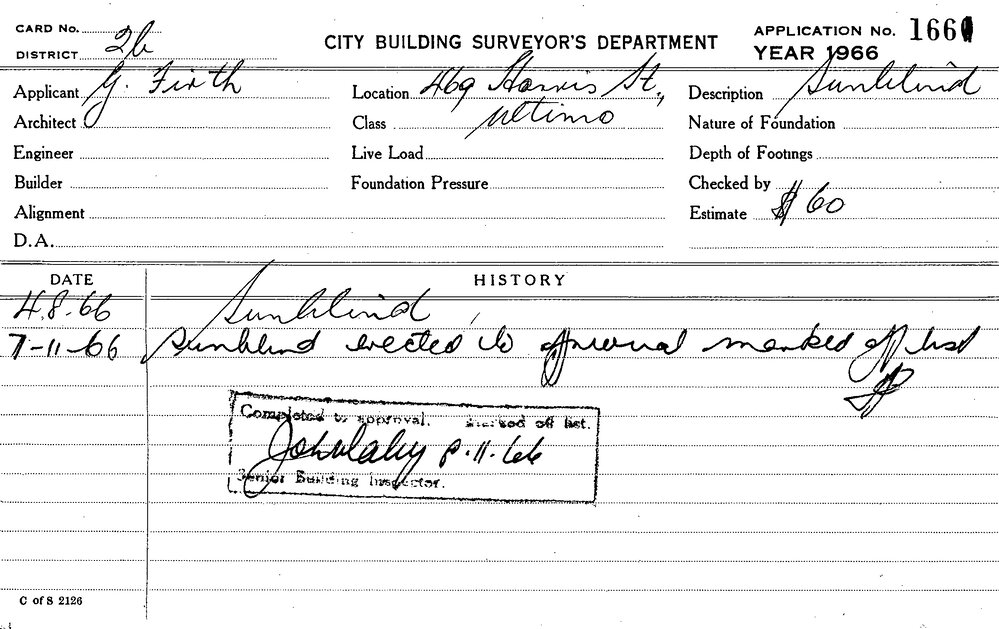 CARD No.
DISTRICT 2b
CITY BUILDING SURVEYOR'S DEPARTMENT
APPLICATION No. 1661
YEAR 1966
Applicant G. Firth
Location 469 Harris St.,
Description Sunblind
Architect
Class Ultimo
Nature of Foundation
Engineer
Live Load
Depth of Footings
Builder
Foundation Pressure
Checked by
Alignment
Estimate $ 60
D.A.
DATE HISTORY
4.8.66 Sunblind
7-11-66 Sunblind erected to approval marked off list
Completed to approval. Marked off list.
8.11.66
Senior Building Inspector.
C of S 2126